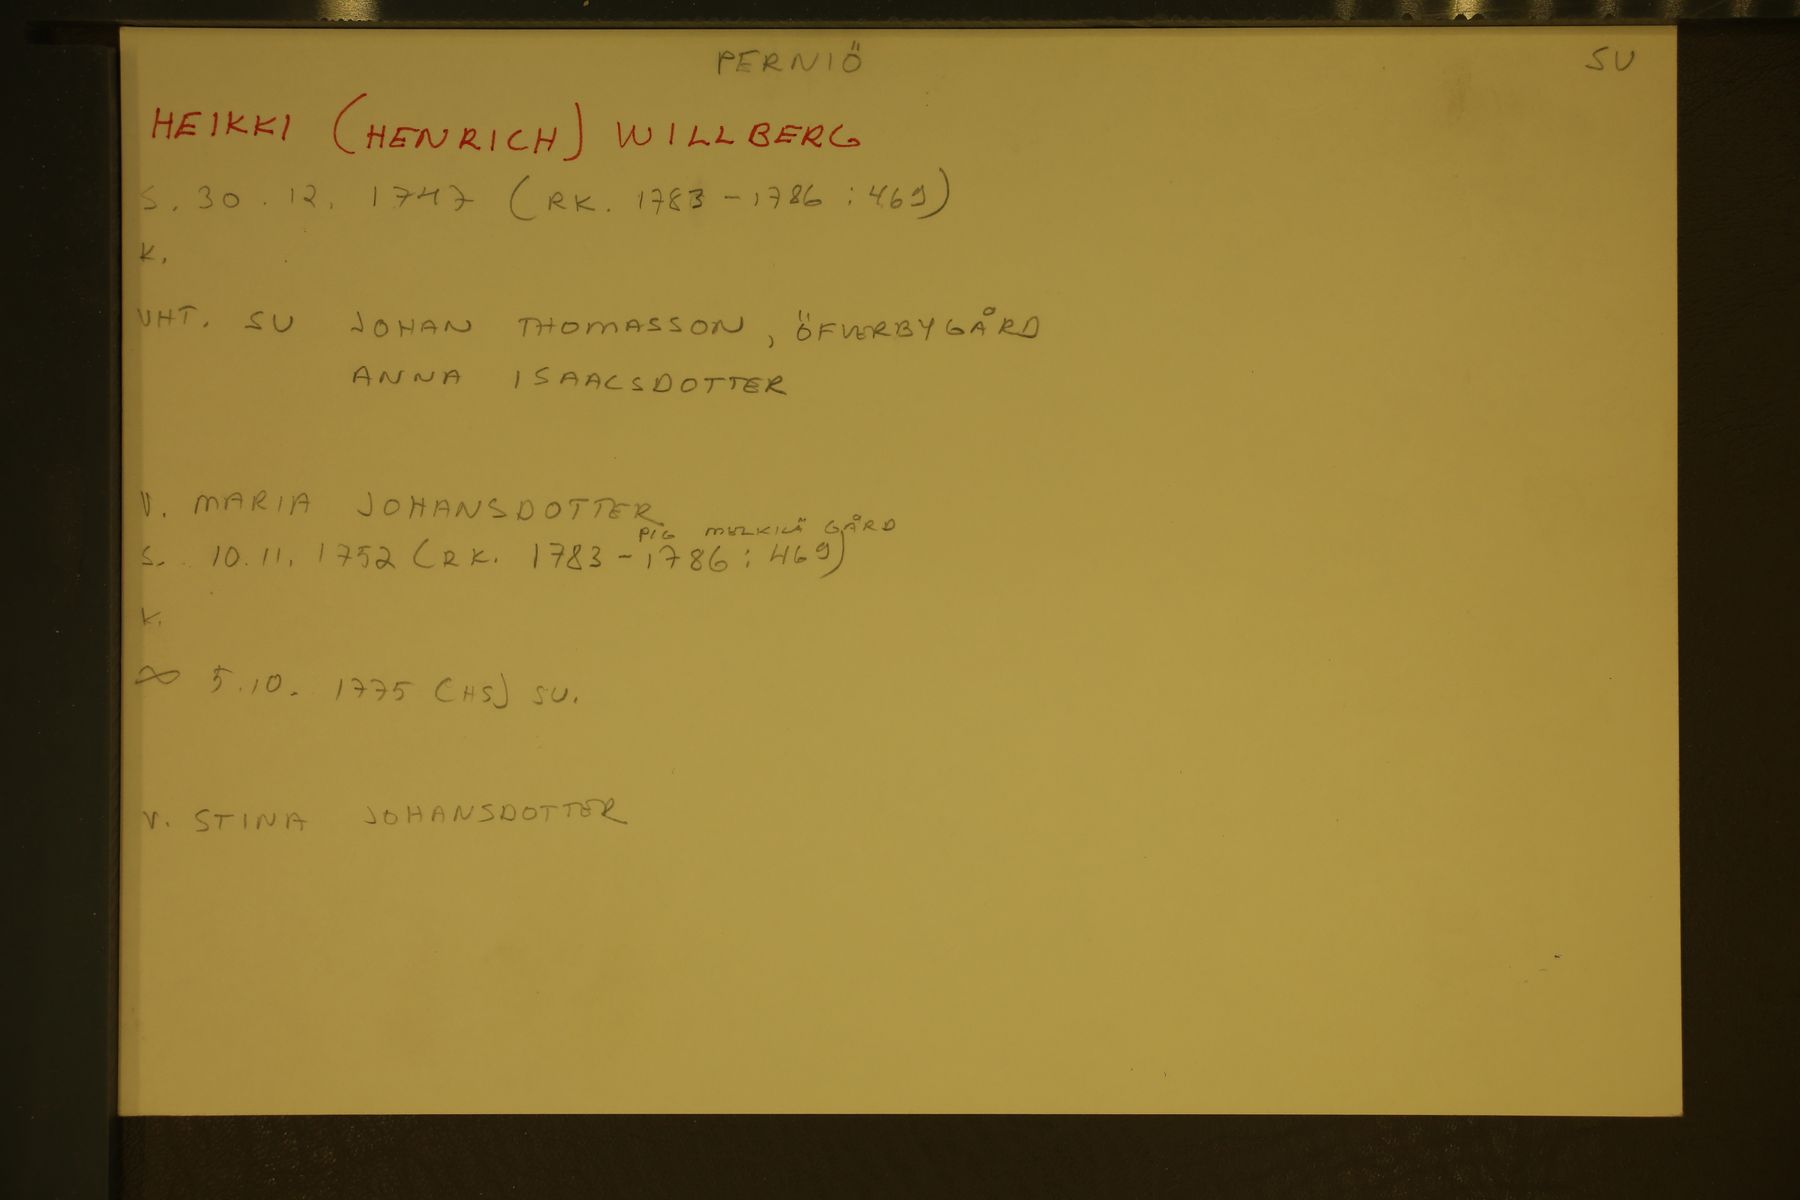 PERNIÖ SU
HEIKKI (HENRICH) WILLBERG
S. 30.12. 1747 (RK. 1783-1786:469)
K.
VHT. SU JOHAN THOMASSON, ÖFVERBYGÅRD
ANNA ISAACSDOTTER
V. MARIA JOHANSDOTTER
PIG MELKILÄ GÅRD
S. 10.11. 1752 (RK. 1783-1786:469)
K.
∞ 5.10. 1775 (HS) SU.
V. STINA JOHANSDOTTER